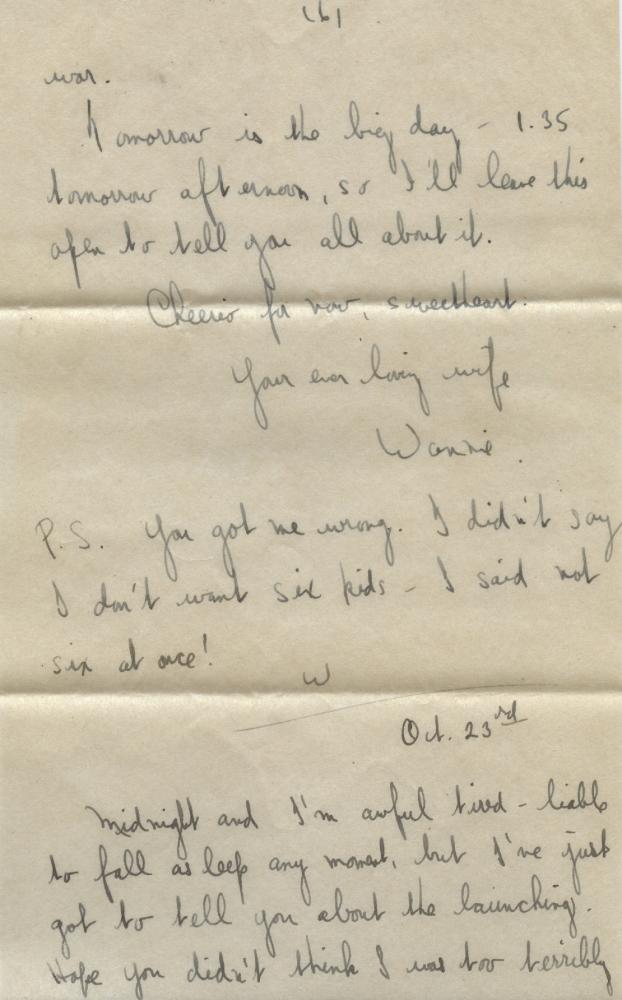 (6)
war.
Tomorrow is the big day - 1.35
tomorrow afternoon, so I'll leave this
open to tell you all about it.
Cheerio for now, sweetheart.
Your ever loving wife
Wannie.
P.S. You got me wrong. I didn't say
I don't want six kids - I said not
six at once!
W
Oct. 23rd
Midnight and I'm awful tired - liable
to fall asleep any moment, but I've just
got to tell you about the launching.
Hope you didn't think I was too terribly